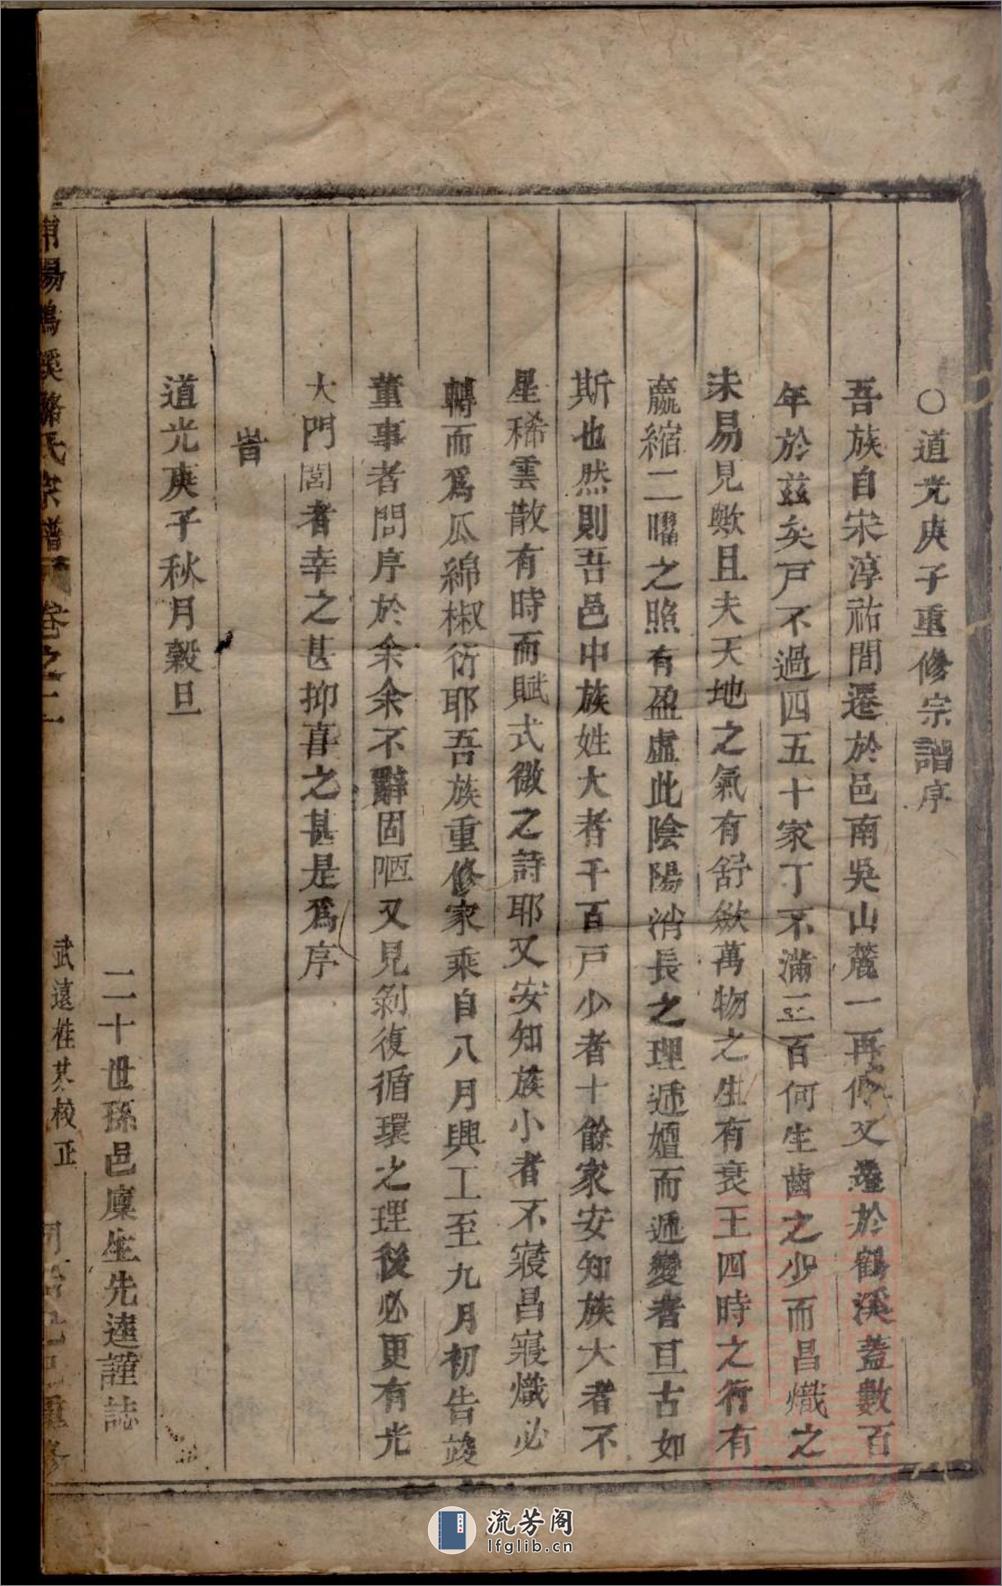 ○道光庚子重修宗譜序
吾族自宋淳祐間遷於邑南吳山麓一再傳又遷於鶴溪蓋數百
年於茲矣戸不過四五十家丁不滿三百何生齒之少而昌熾之
未易見歟且夫天地之氣有舒斂萬物之生有衰王四時之行有
嬴縮二曜之照有盈虛此陰陽消長之理遞嬗而遞變者亘古如
斯也然則吾邑中族姓大者千百戸少者十餘家安知族大者不
星稀雲散有時而賦式微之詩耶又安知族小者不寖昌寖熾必
轉而爲瓜綿椒衍耶吾族重修家乘自八月興工至九月初告竣
董事者問序於余余不辭固陋又見剝復循環之理後必更有光
大門閭者幸之甚抑喜之甚是爲序
旹
道光庚子秋月穀旦
二十世孫邑廩生先達謹誌
陽鶴溪駱氏宗譜 卷之一 武遠桂 校正
流芳阁
lfglib.cn